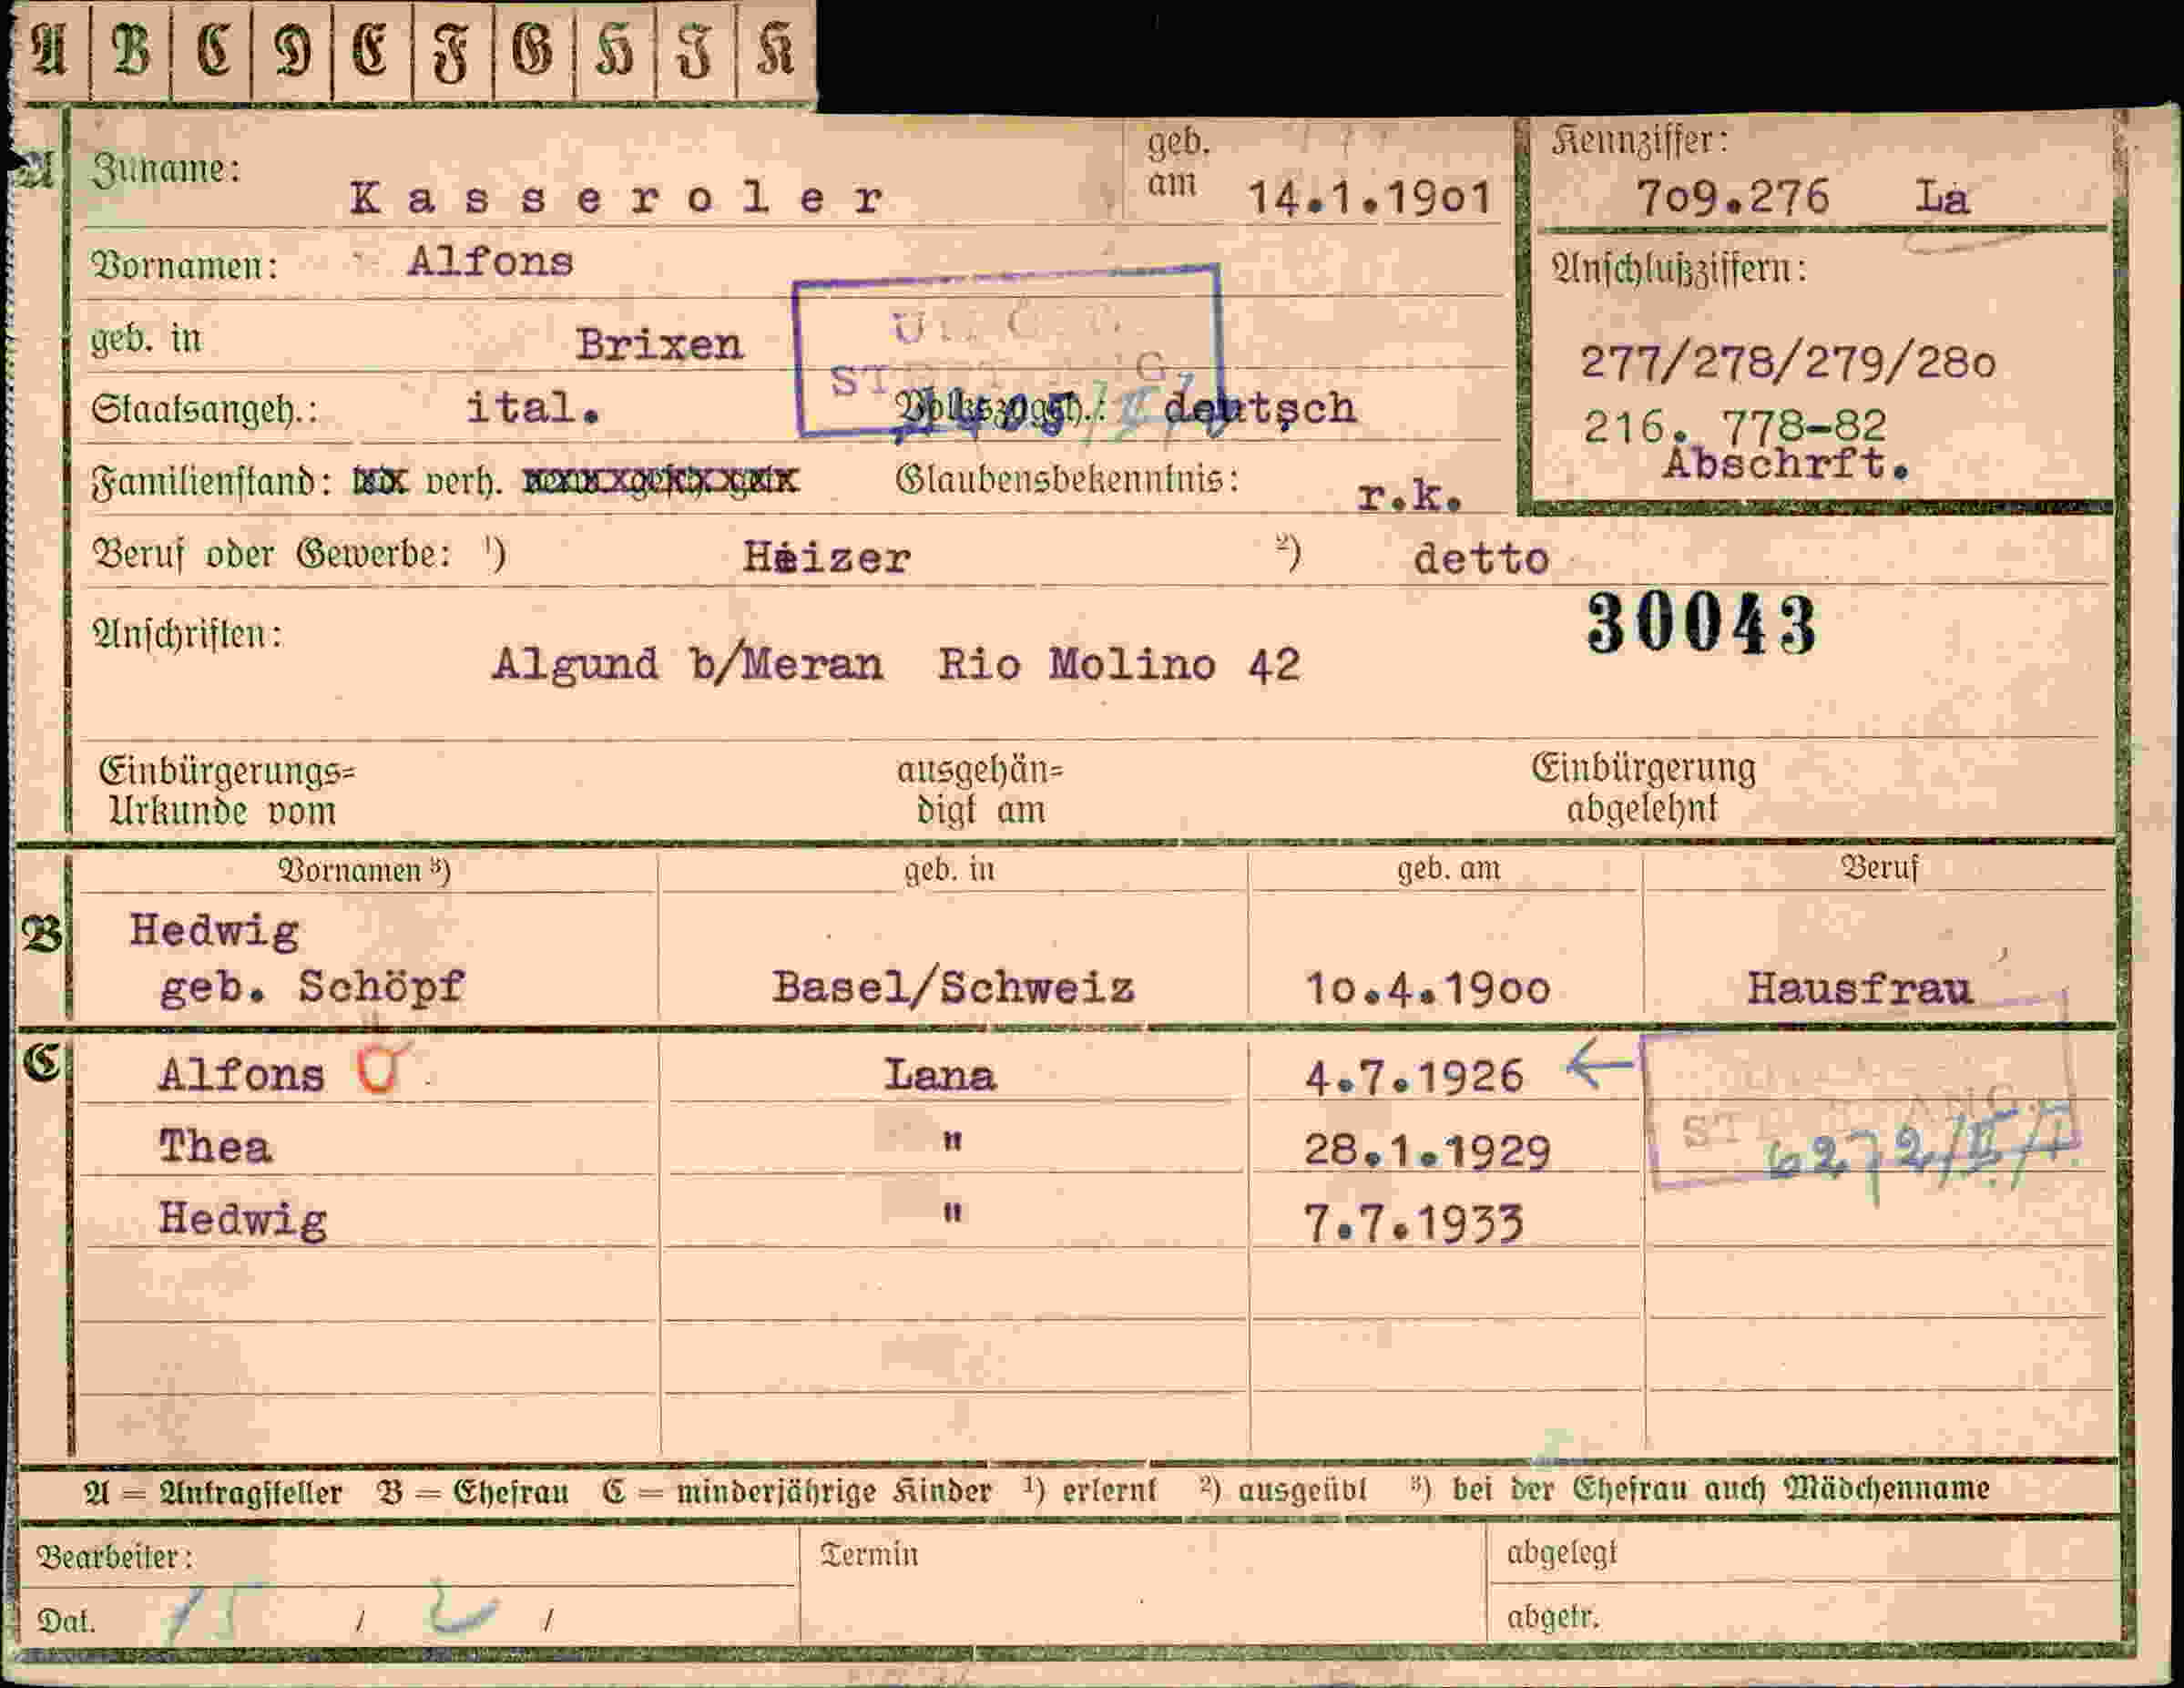 A B C D E F G H I K
A Zuname: Kasseroler geb. am 14.1.1901
Kennziffer: 709.276 La
Vornamen: Alfons
Anschlußziffern:
geb. in Brixen
277/278/279/280
Staatsangeh.: ital. Volkszugeh.: deutsch
216. 778-82
Abschrft.
Familienstand: verh. Glaubensbekenntnis: r.k.
Beruf oder Gewerbe: ¹) Heizer ²) detto
30043
Anschriften: Algund b/Meran Rio Molino 42
Einbürgerungs= ausgehän= Einbürgerung
Urkunde vom digt am abgelehnt
Vornamen ³) geb. in geb. am Beruf
B Hedwig
geb. Schöpf Basel/Schweiz 10.4.1900 Hausfrau
C Alfons Lana 4.7.1926
Thea " 28.1.1929
6272/II/I
Hedwig " 7.7.1933
A = Antragsteller B = Ehefrau C = minderjährige Kinder ¹) erlernt ²) ausgeübt ³) bei der Ehefrau auch Mädchenname
Bearbeiter: Termin abgelegt
Dat. 15 / 2 / abgetr.